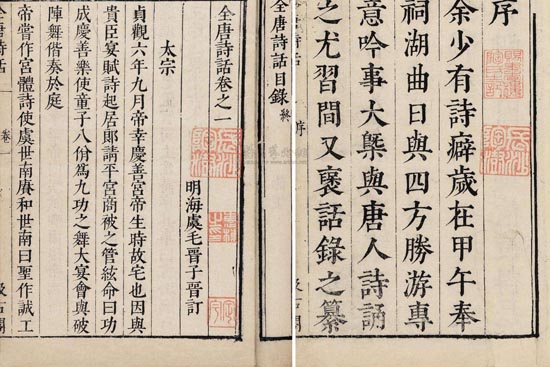 序
余少有詩癖歲在甲午奉
祠湖曲日與四方勝游專
意吟事大槩與唐人詩誦
之尤習間又裒話錄之纂
序
全唐詩話目錄 終
全唐詩話卷之一
明海虞毛晉子晉訂
太宗
貞觀六年九月帝幸慶善宮帝生時故宅也因與
貴臣宴賦詩起居郎請平宮商被之管絃命曰功
成慶善樂使童子八佾爲九功之舞大宴會與破
陣舞偕奏於庭
帝嘗作宮體詩使虞世南賡和世南曰聖作誠工
全唐詩話 卷一